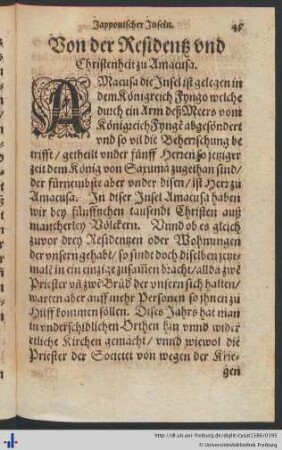 Japponischer Inseln. 45
Von der Residentz vnd
Christenheit zu Amacusa.
AMacusa die Insel ist gelegen in
dem Königreich Fyngo welche
durch ein Arm deß Meers vom
Königreich Fyngè abgesöndert
vnd so vil die Beherrschung be
trifft / getheilt vnder fünff Herren so jetziger
zeit dem König von Saxuma zugethan sind /
der fürnembste aber vnder disen / ist Herr zu
Amacusa. In diser Insel Amacusa haben
wir bey fünffzehen tausendt Christen auß
mancherley Völckern. Vnnd ob es gleich
zuvor drey Residentzen oder Wohnungen
der vnsern gehabt / so sindt doch dieselben jetz-
mals in ein eintzige zusamen bracht / allda zwē
Priester vn̄ zwē Brüd' der vnsern sich halten /
warten aber auff mehr Personen so jhnen zu
Hilff kommen söllen. Dises Jahrs hat man
in vnderschidlichen Orthen hin vnnd wider
etliche Kirchen gemacht / vnnd wiewol die
Priester der Societet von wegen der Krie-
gen
http://dl.ub.uni-freiburg.de/diglit/cysat1586/0195
© Universitätsbibliothek Freiburg